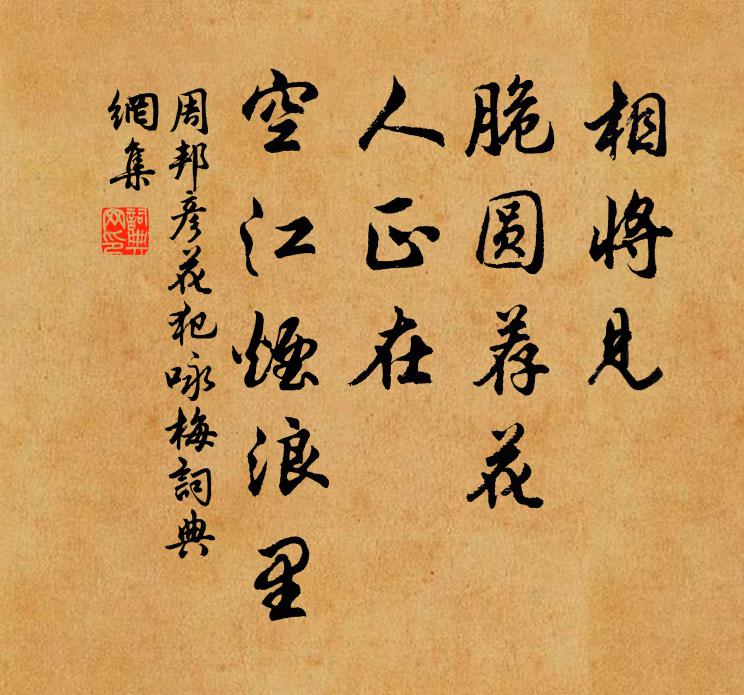 相将见
脆圆荐花
人正在
空江烟浪里
周邦彦花犯咏梅詞典
網集
詞典网印